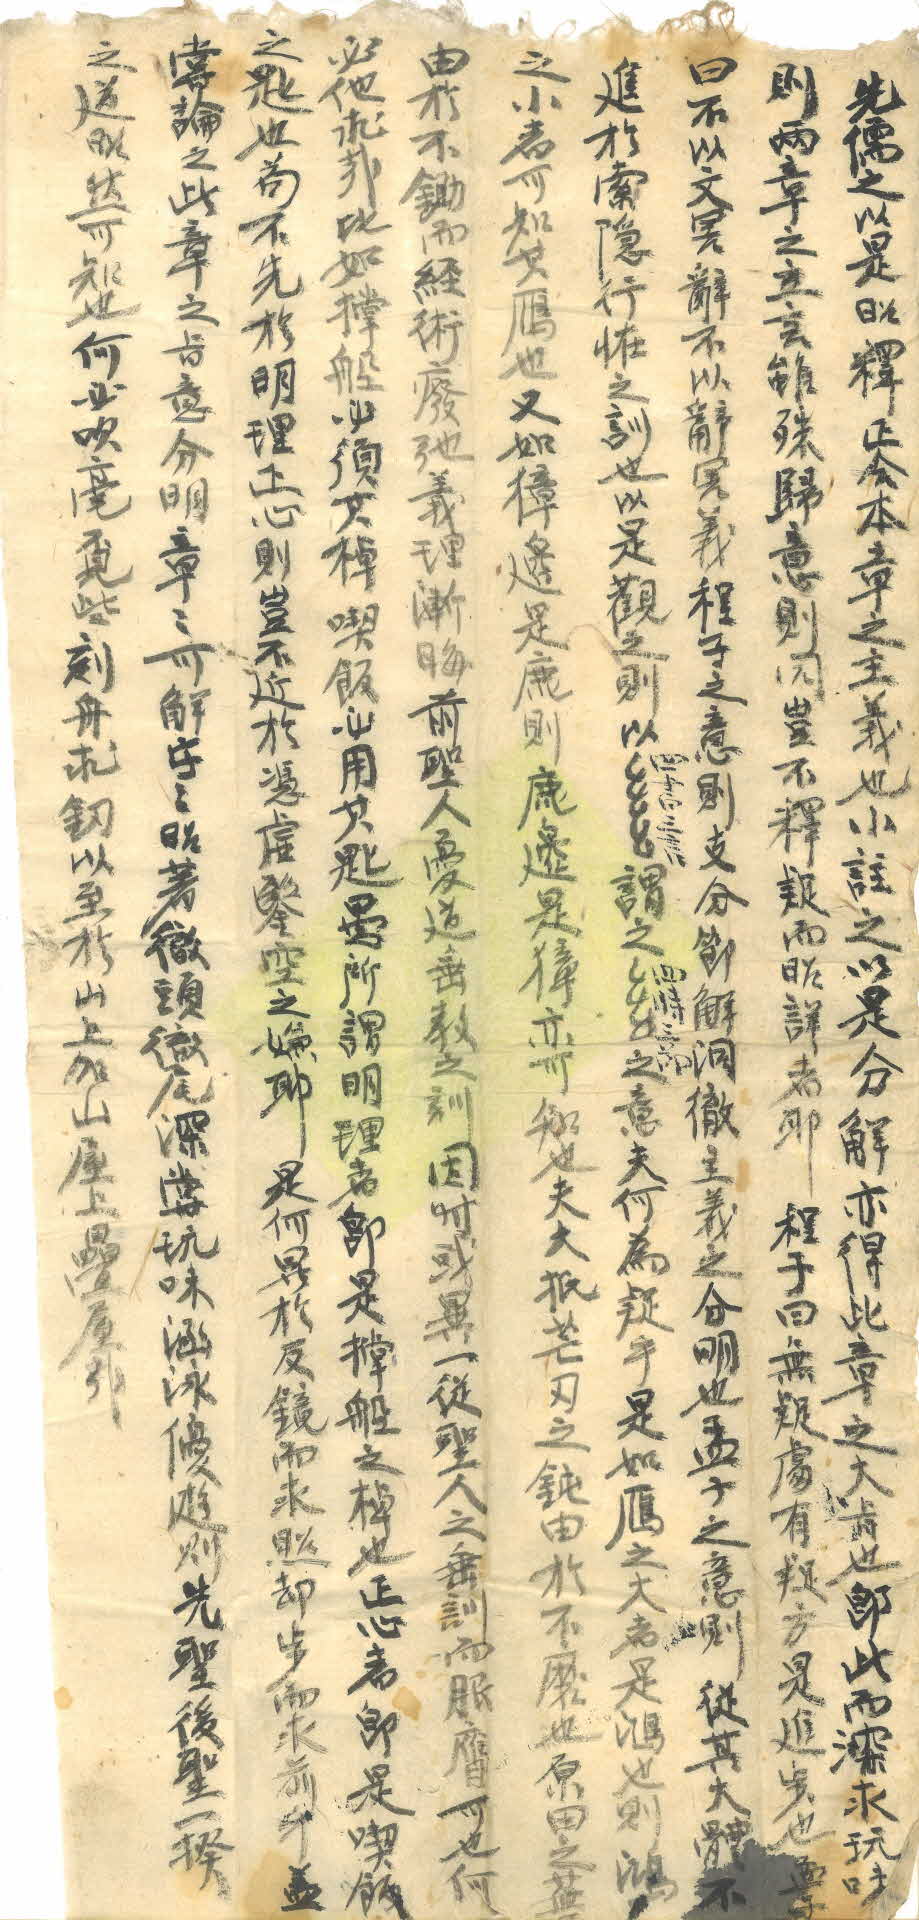 先儒之以是昭釋正合本章之主義也小註之以是分解亦得此章之大旨也卽此而深求玩味
則兩章之立言雖殊歸意則同豈不釋疑而昭詳者耶 程子曰無疑處有疑方是進步也孟子
曰不以文害辭不以辭害義程子之意則支分節解洞徹主義之分明也孟子之意則從其大體不
進於索隱行怪之訓也以是觀之則以云云謂之云云之意夫何爲疑乎是如鴈之大者是鴻也則鴻
四書三書
四時三節
之小者可知其鴈也又如獐邊是鹿則鹿邊是獐亦可知也夫大抵芒刃之鈍由於不磨也原田之蕪
由於不鋤而經術廢弛義理漸晦前聖人憂道垂敎之訓因時或異一從聖人之垂訓而服膺可也何
必他求耶比如撑船必須其棹喫飯必用其匙愚所謂明理者卽是撑船之棹也正心者卽是喫飯
之匙也苟不先於明理正心則豈不近於憑虛鑿空之嫌耶 是何異於反鏡而求照却步而求前乎盖
嘗論之此章之旨意分明章〻可解字〻昭著徹頭徹尾深嘗玩味涵泳優遊則先聖後聖一揆
之道昭然可知也何必吹毫覓些刻舟求釰以至於山上加山屋上疊屋耶